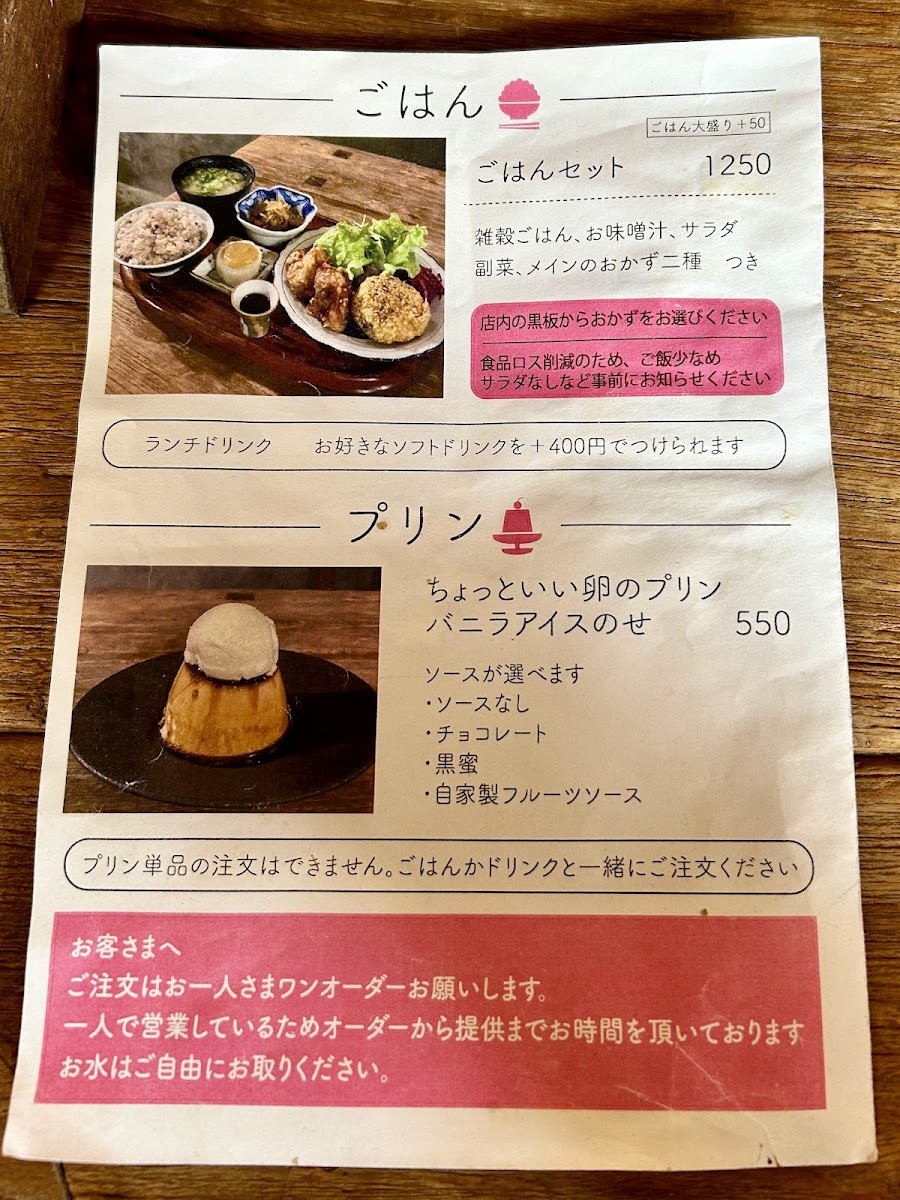 ごはん
ごはん大盛り+50
ごはんセット 1250
雑穀ごはん、お味噌汁、サラダ
副菜、メインのおかず二種 つき
店内の黒板からおかずをお選びください
食品ロス削減のため、ご飯少なめ
サラダなしなど事前にお知らせください
ランチドリンク お好きなソフトドリンクを+400円でつけられます
プリン
ちょっといい卵のプリン
バニラアイスのせ 550
ソースが選べます
・ソースなし
・チョコレート
・黒蜜
・自家製フルーツソース
プリン単品の注文はできません。ごはんかドリンクと一緒にご注文ください
お客さまへ
ご注文はお一人さまワンオーダーお願いします。
一人で営業しているためオーダーから提供までお時間を頂いております
お水はご自由にお取りください。